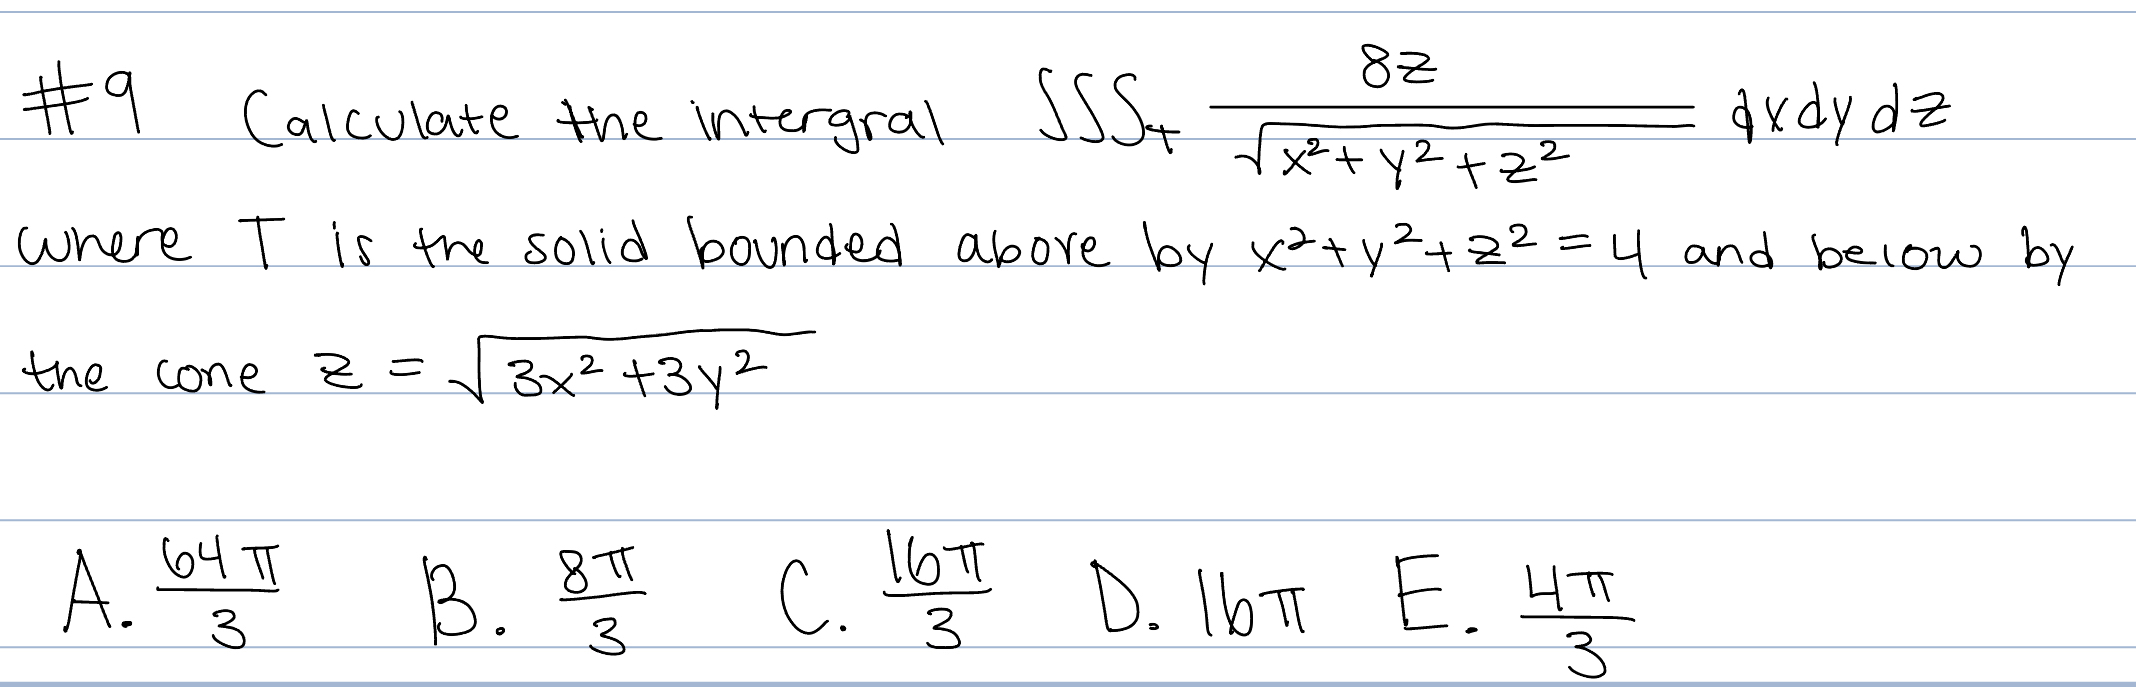 #9 Calculate the intergral ∭ₜ 8z/√(x²+y²+z²) dxdydz
where T is the solid bounded above by x²+y²+z²=4 and below by
the cone z = √(3x²+3y²)
A. 64π/3 B. 8π/3 C. 16π/3 D. 16π E. 4π/3